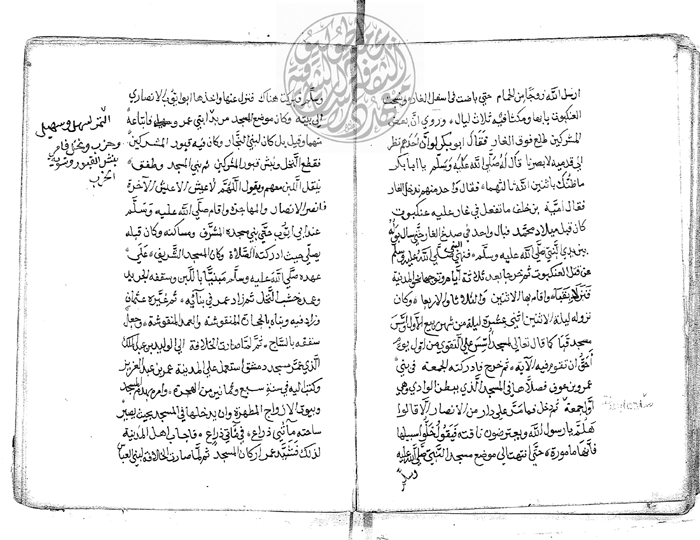 ارسل الله زوجا من الحمام حتى باضت في اسفل الغار ونسجت
العنكبوت بابها ومكثا فيه ثلاث ليال وروي ان بعض
المشركين طلع فوق الغار فقال ابو بكر لو ان احدهم نظر
الى قدميه لابصرنا قال له صلى الله عليه وسلم يا ابا بكر
ما ظنك باثنين الله ثالثهما فقال واحد منهم ندخل الغار
فقال امية بن خلف ما نفعل في غار عليه عنكبوت
كان قبل ميلاد محمد فبال واحد في صدع الغار حتى سال بوله
بين يدي النبي صلى الله عليه وسلم فنهى النبي صلى الله عليه وسلم
عن قتل العنكبوت ثم خرجا بعد ثلاثة ايام وتوجها الى المدينة
فنزلا بقباء واقام بها الاثنين والثلاثاء والاربعاء وكان
نزوله ليلة الاثنين اثنى عشرة ليلة من شهر ربيع الاول واسس
مسجد قبا كما قال تعالى لمسجد اسس على التقوى من اول يوم
احق ان تقوم فيه الآية ثم خرج فادركته الجمعة في بني
عمرو بن عوف فصلاها في المسجد الذي ببطن الوادي وهي
اول جمعة ثم دخل فما مر على دار من الانصار الا قالوا
هلم يا رسول الله ويعترضون ناقته فيقول خلوا سبيلها
فانها مامورة حتى انتهت الى موضع مسجد النبي صلى الله عليه
وسلم
وسلم فبركت هناك فنزل عنها واخذها ابو ايوب الانصاري
الى بيته وكان موضع المسجد مربدا لبني عمرو فابتاعه
منهما وقيل بل كان لبني النجار وكان فيه قبور المشركين
فقطع النخل ونبش قبور المشركين ثم بني المسجد وطفق
ينقل اللبن معهم ويقول اللهم لا عيش الا عيش الآخرة
فانصر الانصار والمهاجرة واقام صلى الله عليه وسلم
عند ابي ايوب حتى بنى مسجده المشرف ومساكنه وكان قبله
يصلي حيث ادركته الصلاة وكان المسجد الشريف على
عهده صلى الله عليه وسلم مبنيا باللبن وسقفه الجريد
وعمده خشب النخل ثم زاد عمر في بنائه ثم غيره عثمان
وزاد فيه وبناه بالحجارة المنقوشة والعمد المنقوشة وجعل
سقفه بالساج ثم لما صارت الخلافة الى الوليد بن عبد الملك
الذي عمر مسجد دمشق استعمل على المدينة عمر بن عبد العزيز
وكتب اليه في سنة سبع وثمانين من الهجرة وامره بهدم المسجد
وبيوت الازواج المطهرة وان يدخلها في المسجد بحيث يصير
ساحته مأتي ذراع في مأتي ذراع فاجاب اهل المدينة
لذلك فشيد عمر اركان المسجد ثم لما صارت الخلافة لبني العباس
سهل وسهيل
القبور
الخرب